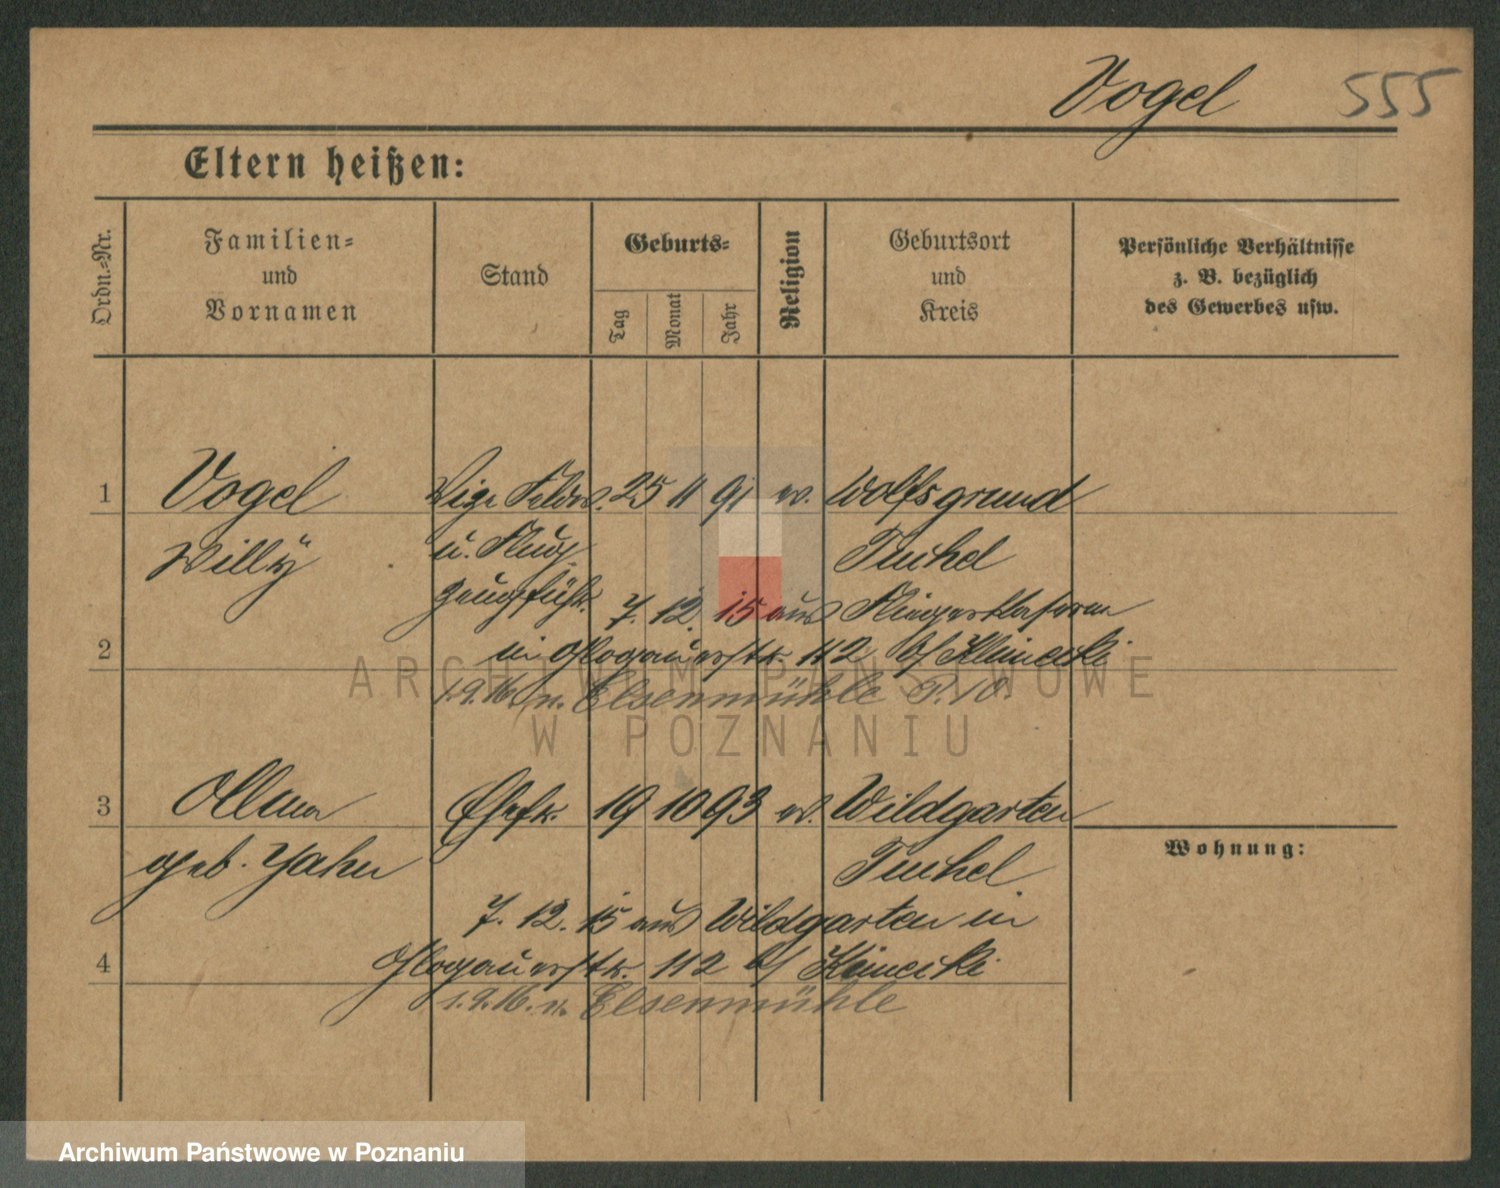 Vogel 555
Eltern heißen:
Ordn.=Nr.
Familien=
und
Vornamen
Stand
Geburts=
Tag
Monat
Jahr
Religion
Geburtsort
und
Kreis
Persönliche Verhältnisse
z. B. bezüglich
des Gewerbes usw.
1 Vogel Vize Feldw. 25 11 91 ev. Wolfsgrund
Willy u. Flug Tuchel
zeugführ. 7. 12. 15 aus Fliegerkaserne
2 in Glogauerstr. 112 b/
1.9.16. n. Elsenmühle P. 10.
ARCHIWUM PAŃSTWOWE
W POZNANIU
3 Ehefr. 19 10 93 ev. Wildgarten
geb. Jahn Tuchel
Wohnung:
7. 12. 15 aus Wildgarten in
4 Glogauerstr. 112 b/
1.9.16. n. Elsenmühle
Archiwum Państwowe w Poznaniu